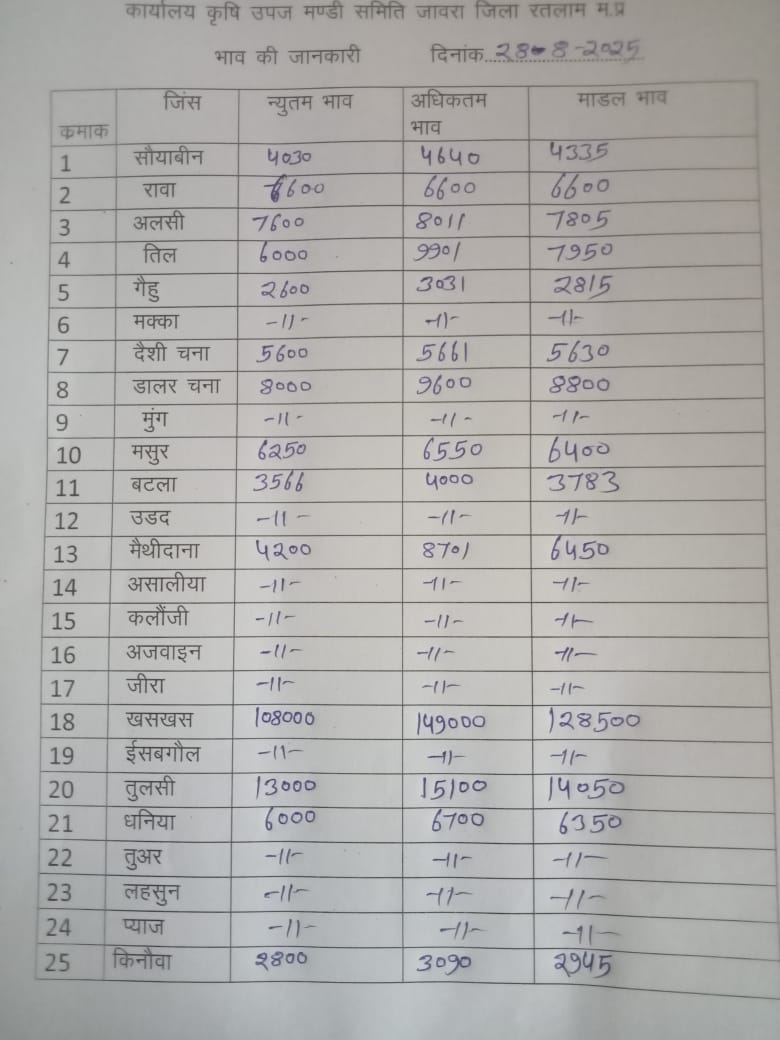 कार्यालय कृषि उपज मण्डी समिति जावरा जिला रतलाम म.प्र
भाव की जानकारी दिनांक 28-8-2025
कमाक जिंस न्युतम भाव अधिकतम भाव माडल भाव
1 सौयाबीन 4030 4640 4335
2 रावा 6600 6600 6600
3 अलसी 7600 8011 7805
4 तिल 6000 9901 7950
5 गैहु 2600 3031 2815
6 मक्का -11- -11- -11-
7 दैशी चना 5600 5661 5630
8 डालर चना 8000 9600 8800
9 मुंग -11- -11- -11-
10 मसुर 6250 6550 6400
11 बटला 3566 4000 3783
12 उडद -11- -11- -11-
13 मैथीदाना 4200 8701 6450
14 असालीया -11- -11- -11-
15 कलौंजी -11- -11- -11-
16 अजवाइन -11- -11- -11-
17 जीरा -11- -11- -11-
18 खसखस 108000 149000 128500
19 ईसबगौल -11- -11- -11-
20 तुलसी 13000 15100 14050
21 धनिया 6000 6700 6350
22 तुअर -11- -11- -11-
23 लहसुन -11- -11- -11-
24 प्याज -11- -11- -11-
25 किनौवा 2800 3090 2945